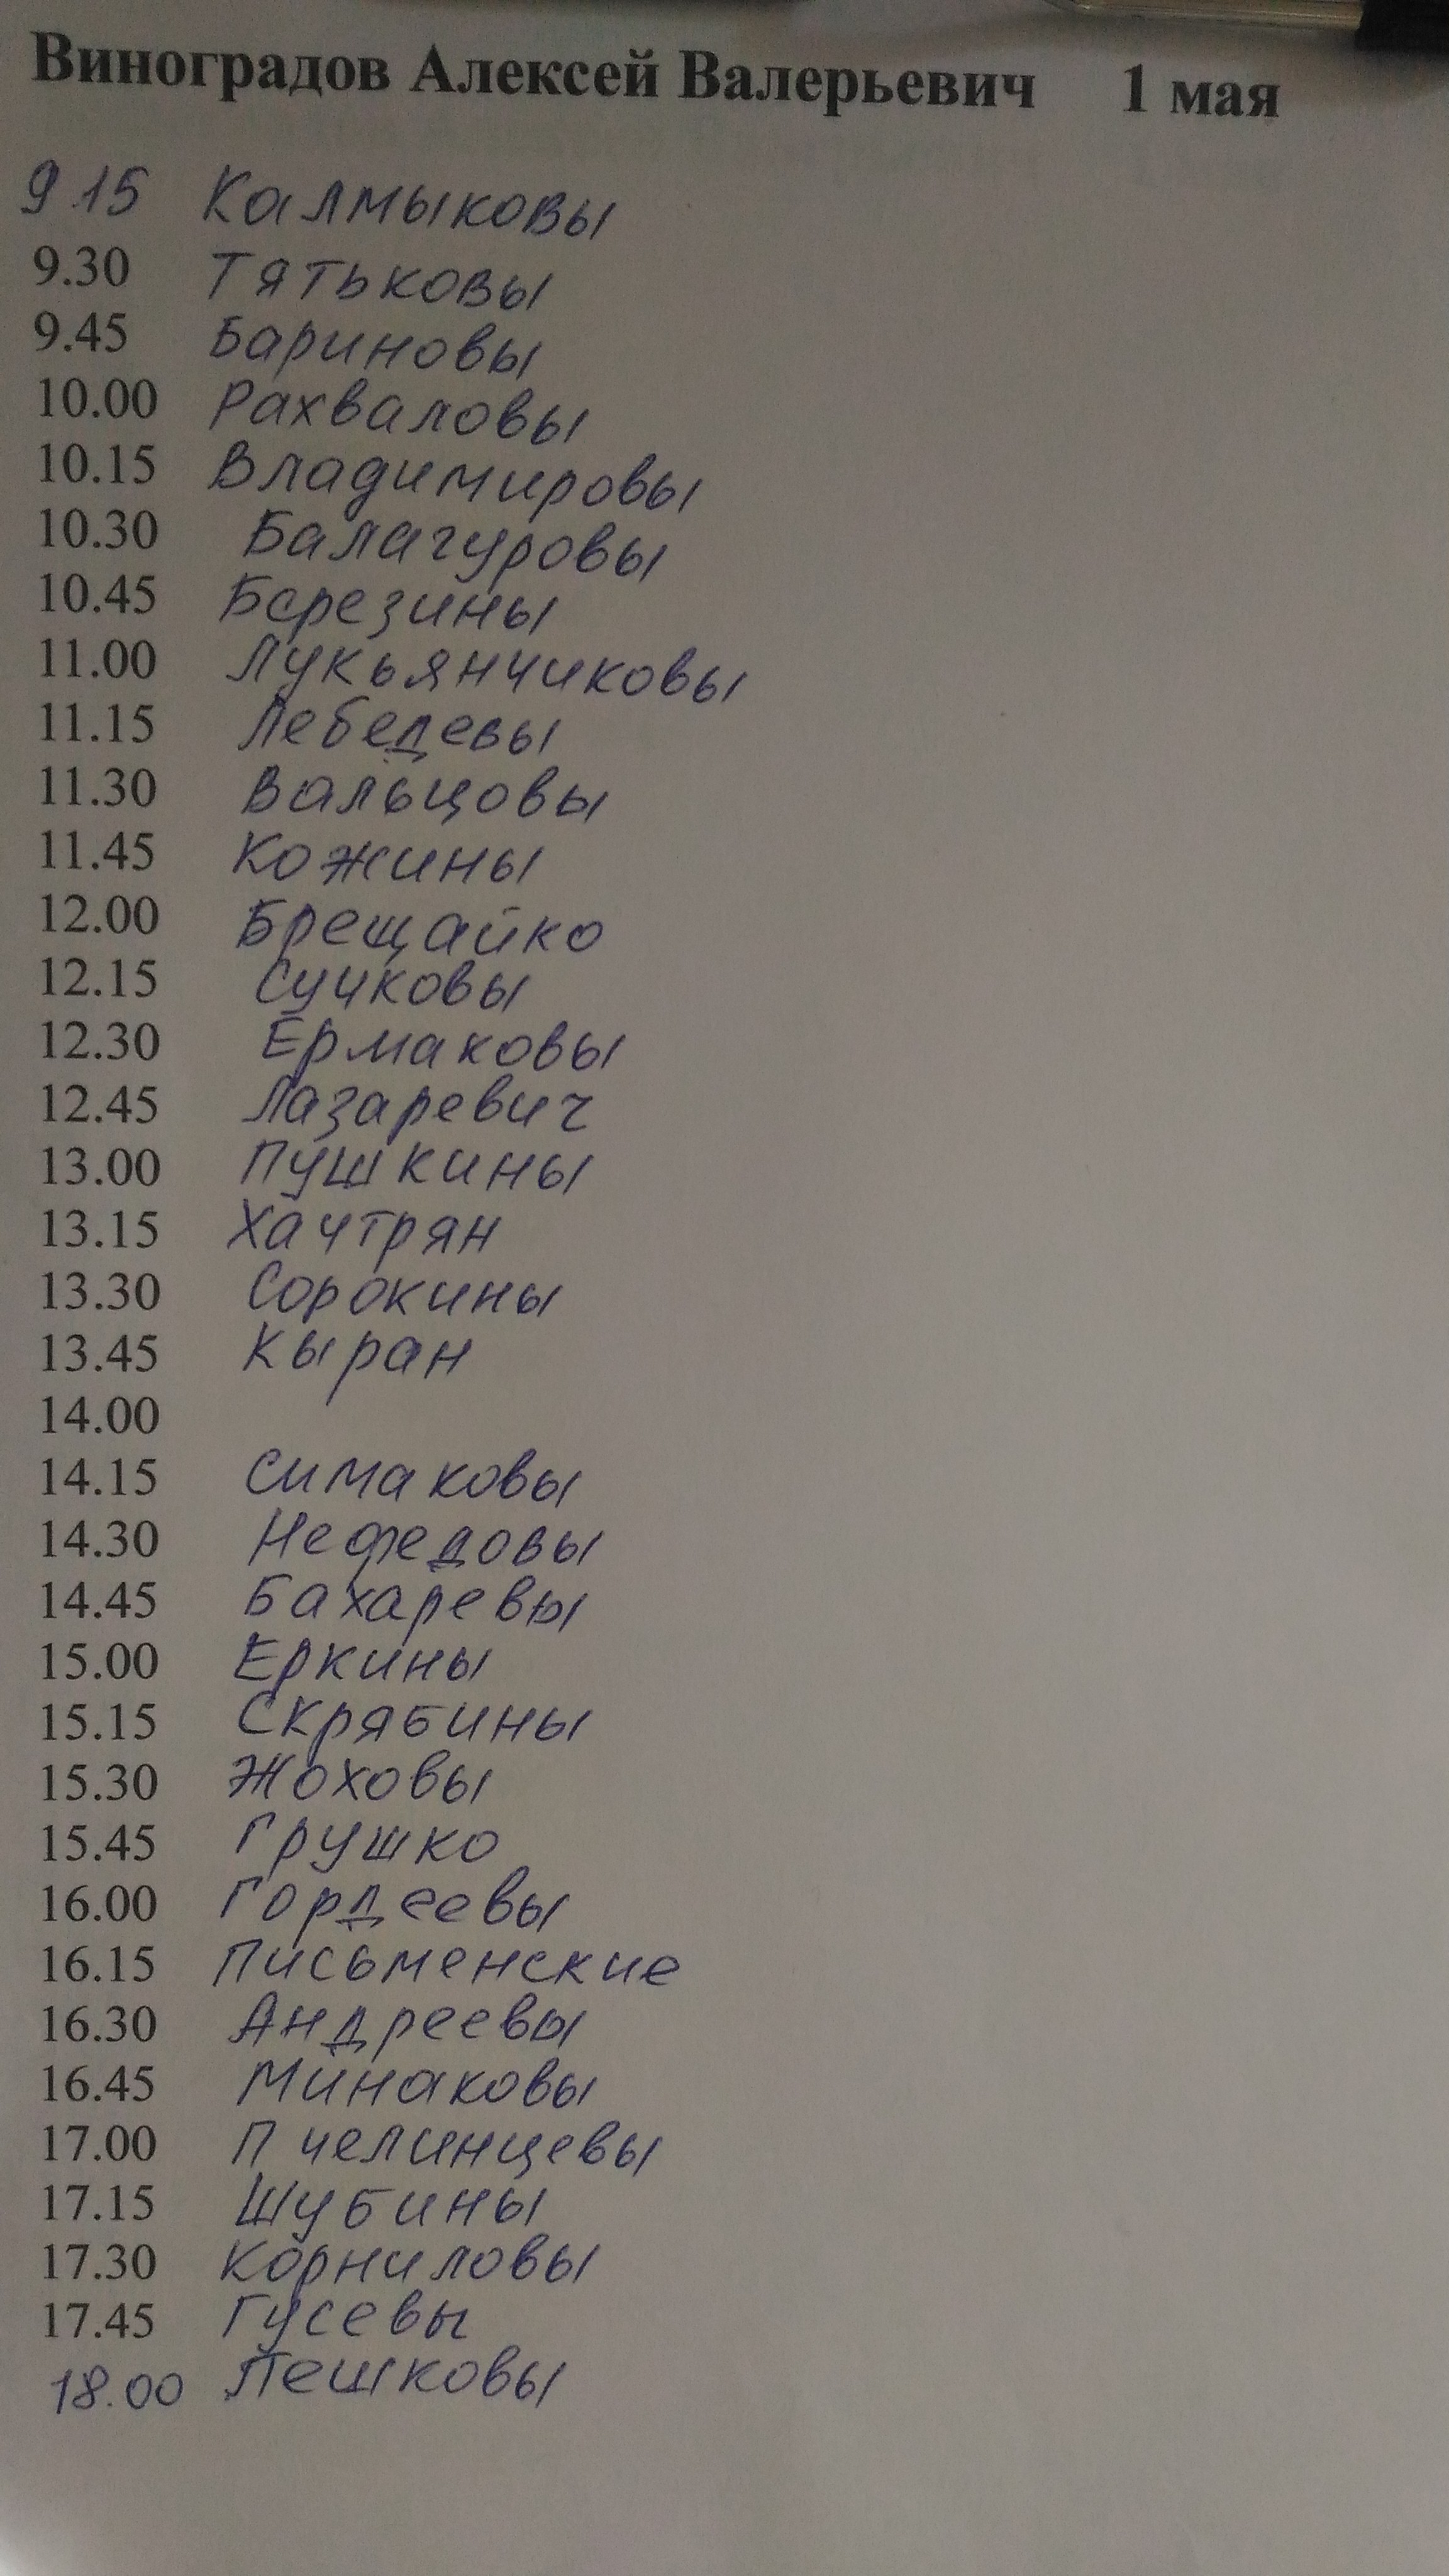 Виноградов Алексей Валерьевич 1 мая
9.15 Калмыковы
9.30 Тятьковы
9.45 Бариновы
10.00 Рахваловы
10.15 Владимировы
10.30 Балагуровы
10.45 Березины
11.00 Лукьянчиковы
11.15 Лебедевы
11.30 Вальцовы
11.45 Кожины
12.00 Брещайко
12.15 Сучковы
12.30 Ермаковы
12.45 Лазаревич
13.00 Пушкины
13.15 Хачтрян
13.30 Сорокины
13.45 Кыран
14.00
14.15 Симаковы
14.30 Нефедовы
14.45 Бахаревы
15.00 Еркины
15.15 Скрябины
15.30 Жоховы
15.45 Грушко
16.00 Гордеевы
16.15 Письменские
16.30 Андреевы
16.45 Минаковы
17.00 Пчелинцевы
17.15 Шубины
17.30 Корниловы
17.45 Гусевы
18.00 Пешковы